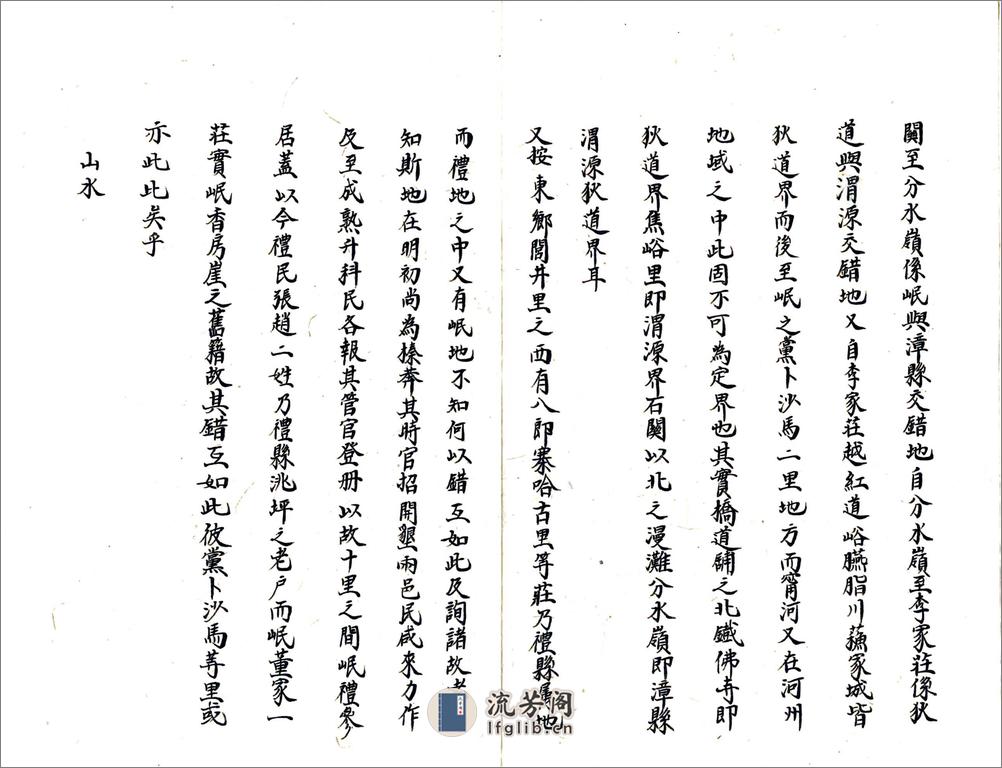 關至分水嶺係岷與漳縣交錯地自分水嶺至李家莊係狄
道與渭源交錯地又自李家莊越紅道峪臙脂川蘓家城皆
狄道界而後至岷之黨卜沙馬二里地方而甯河又在河州
地域之中此固不可為定界也其實橋道鋪之北鐵佛寺即
狄道界焦峪里即渭源界石關以北之漫灘分水嶺即漳縣
渭源狄道界耳
又按東鄉閭井里之西有八郎寨哈古里等莊乃禮縣屬地
而禮地之中又有岷地不知何以錯互如此及詢諸故老
知斯地在明初尚為榛莽其時官招開墾兩邑民咸來力作
及至成熟升科民各報其管官登册以故十里之間岷禮參
居蓋以今禮民張趙二姓乃禮縣洮坪之老户而岷董家一
莊實岷香房崖之舊籍故其錯互如此彼黨卜沙馬等里或
亦此比矣乎
山水
流芳阁
lfglib.cn